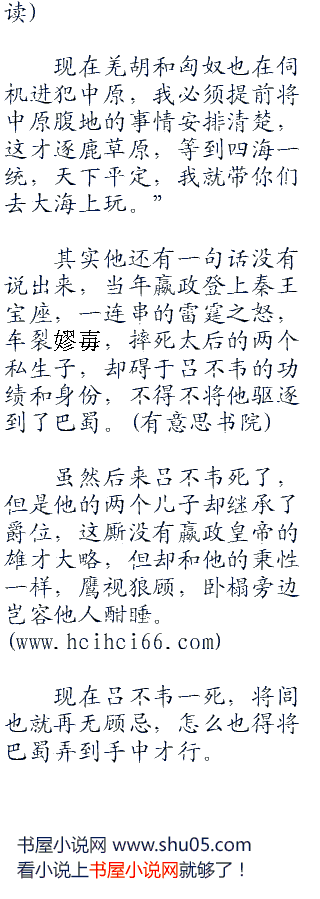 读)
现在羌胡和匈奴也在伺
机进犯中原，我必须提前将
中原腹地的事情安排清楚，
这才逐鹿草原，等到四海一
统，天下平定，我就带你们
去大海上玩。”
其实他还有一句话没有
说出来，当年嬴政登上秦王
宝座，一连串的雷霆之怒，
车裂嫪毐，摔死太后的两个
私生子，却碍于吕不韦的功
绩和身份，不得不将他驱逐
到了巴蜀。(有意思书院)
虽然后来吕不韦死了，
但是他的两个儿子却继承了
爵位，这厮没有嬴政皇帝的
雄才大略，但却和他的秉性
一样，鹰视狼顾，卧榻旁边
岂容他人酣睡。
(www.hcihci66.com)
现在吕不韦一死，将闾
也就再无顾忌，怎么也得将
巴蜀弄到手中才行。
书屋小说网 www.shu05.com
看小说上书屋小说网就够了！